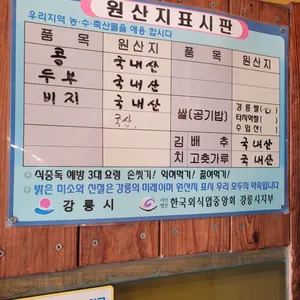 원산지표시판
우리지역 농·수·축산물을 애용 합시다
품 목 원산지 품 목 원산지
콩 국내산
두부 국내산
비지 국내산
국산
쌀(공기밥) 강릉쌀( )
타지역쌀( )
수입산( )
김치 배추 국내산
고춧가루 국내산
식중독 예방 3대 요령 손씻기/ 익혀먹기/ 끓여먹기/
밝은 미소와 친절은 강릉의 미래이며 원산지 표시 우리 모두의 약속입니다
강릉시 사단법인 한국외식업중앙회 강릉시지부